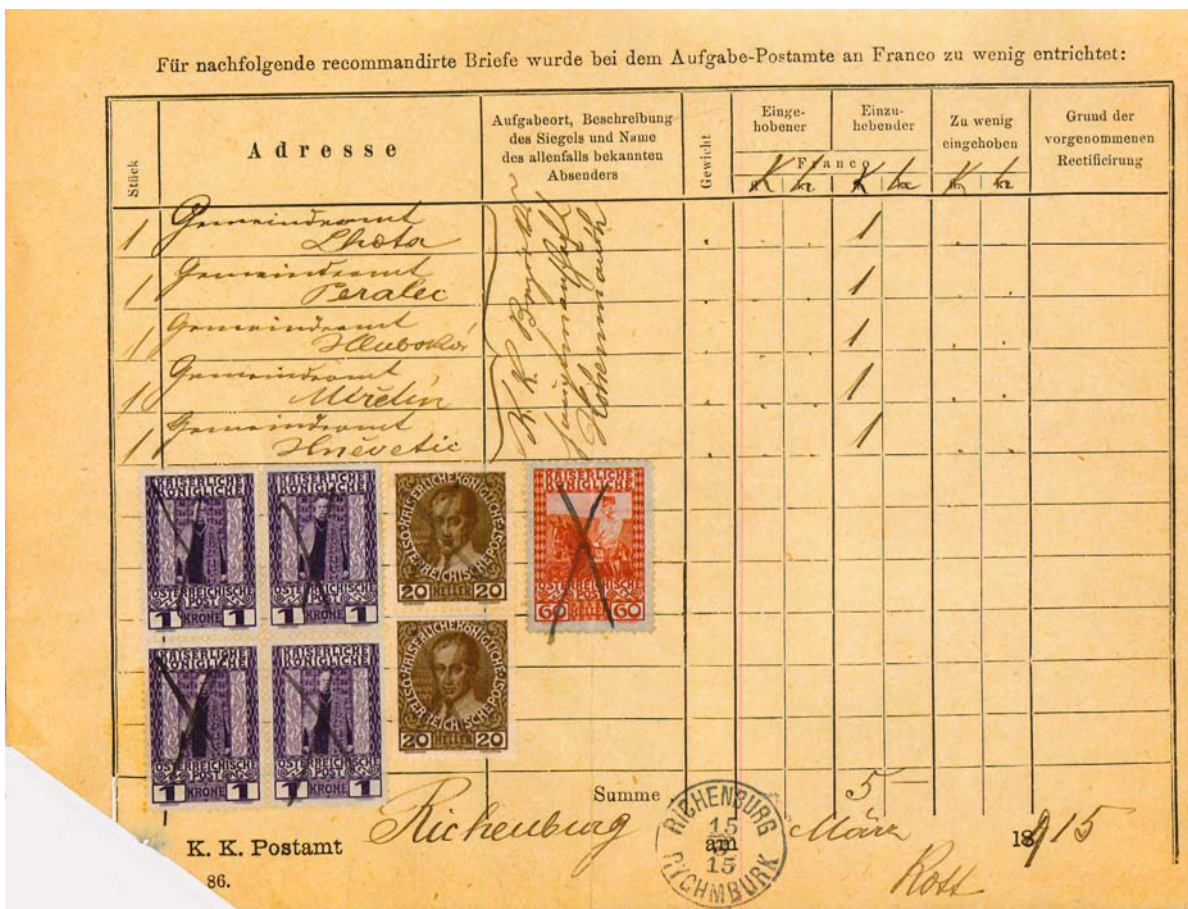 Für nachfolgende recommandirte Briefe wurde bei dem Aufgabe-Postamte an Franco zu wenig entrichtet:
Stück
Adresse
Aufgabeort, Beschreibung
des Siegels und Name
des allenfalls bekannten
Absenders
Gewicht
Einge-
hobener
Einzu-
hebender
Franco
Zu wenig
eingehoben
Grund der
vorgenommenen
Rectificirung
K
K
K
1 Gemeindeamt
Lhota 1
1 Gemeindeamt
Peralec 1
1 Gemeindeamt
Hluboká 1
1 Gemeindeamt
Miřetín 1
1 Gemeindeamt
Hněvetic 1
KAISERLICHE
KÖNIGLICHE
ÖSTERREICHISCHE
POST
1 KRONE 1
KAISERLICHE
KÖNIGLICHE
ÖSTERREICHISCHE
POST
1 KRONE 1
KAISERLICHE KÖNIGLICHE
ÖSTERREICHISCHE POST
20 HELLER 20
KAISERLICHE
KÖNIGLICHE
ÖSTERREICHISCHE
POST
60 HELLER 60
KAISERLICHE
KÖNIGLICHE
ÖSTERREICHISCHE
POST
1 KRONE 1
KAISERLICHE
KÖNIGLICHE
ÖSTERREICHISCHE
POST
1 KRONE 1
KAISERLICHE KÖNIGLICHE
ÖSTERREICHISCHE POST
20 HELLER 20
Summe 5 –
K. K. Postamt Richenburg am März 1915
RICHENBURG
15
3
15
RYCHMBURK
86.